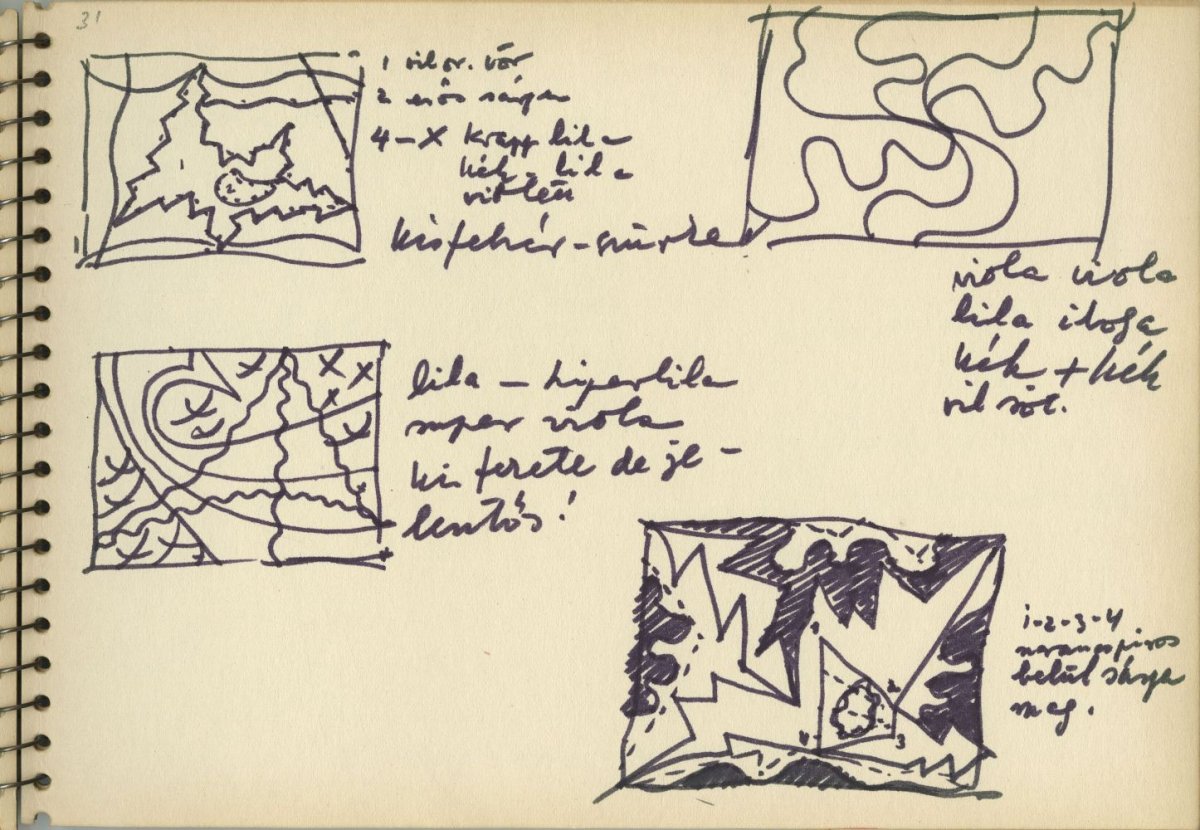 31
1 vil or. vör
2 erős sárga
4 – X krapp lila
kék – lila
kisfehér – szürke
viola viola
lila
kék + kék
lila – hiperlila
super viola
ki fekete de je –
lentős!
1-2-3-4
narancspiros
belül sárga
mag.
1
2
3
4